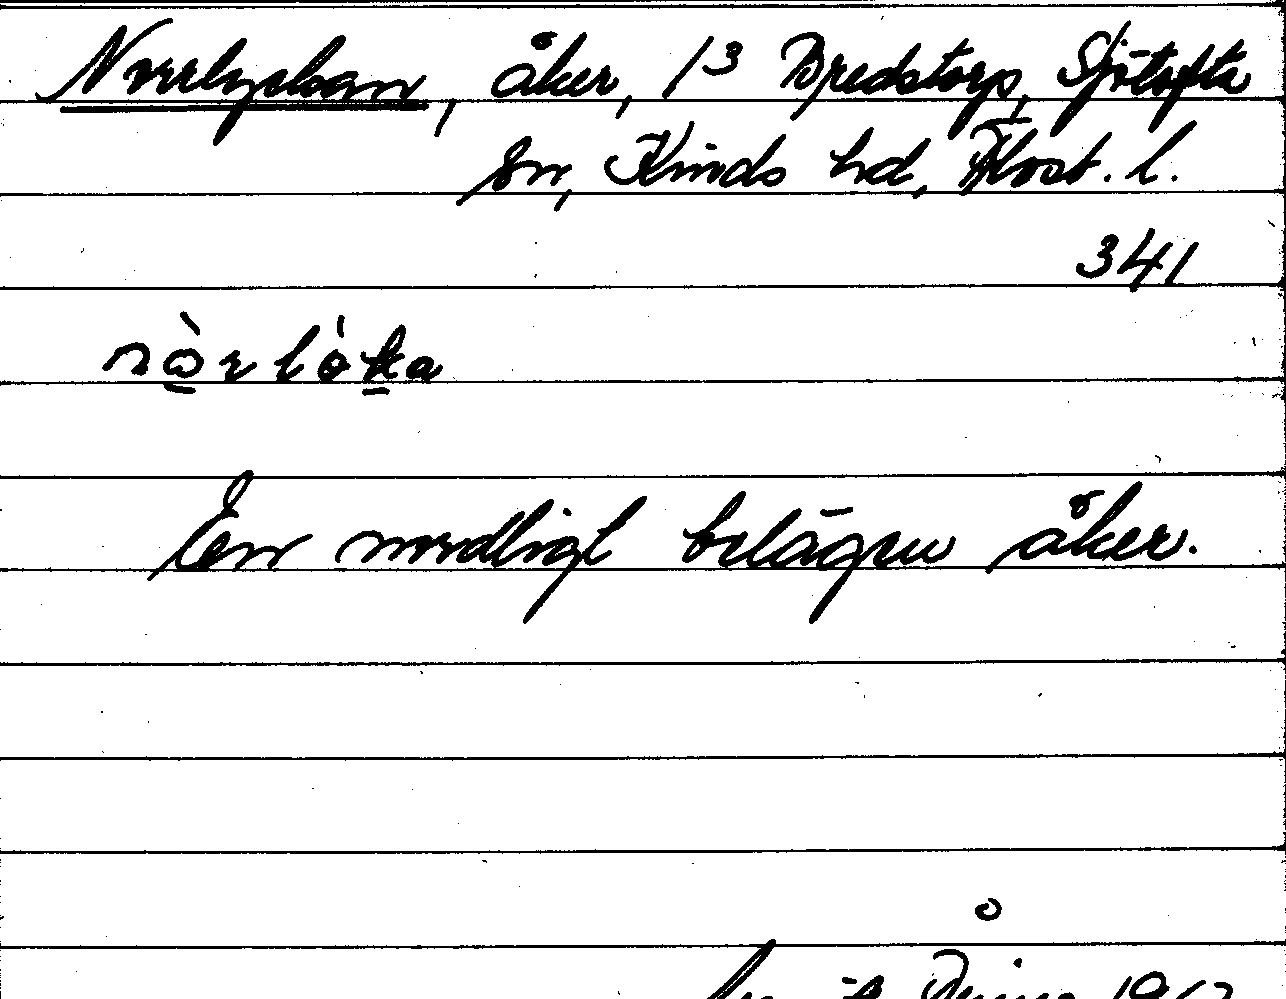 Norrlyckan, åker, 13 Bredstorp, Sjötofta
sn, Kinds hd, Älvsb. l.
341
En nordligt belägen åker.